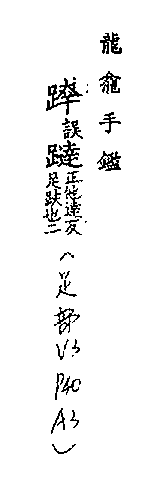 龍龕手鑑
𨅖誤躂正他達反足跌也二(足部V3 P40 A3)